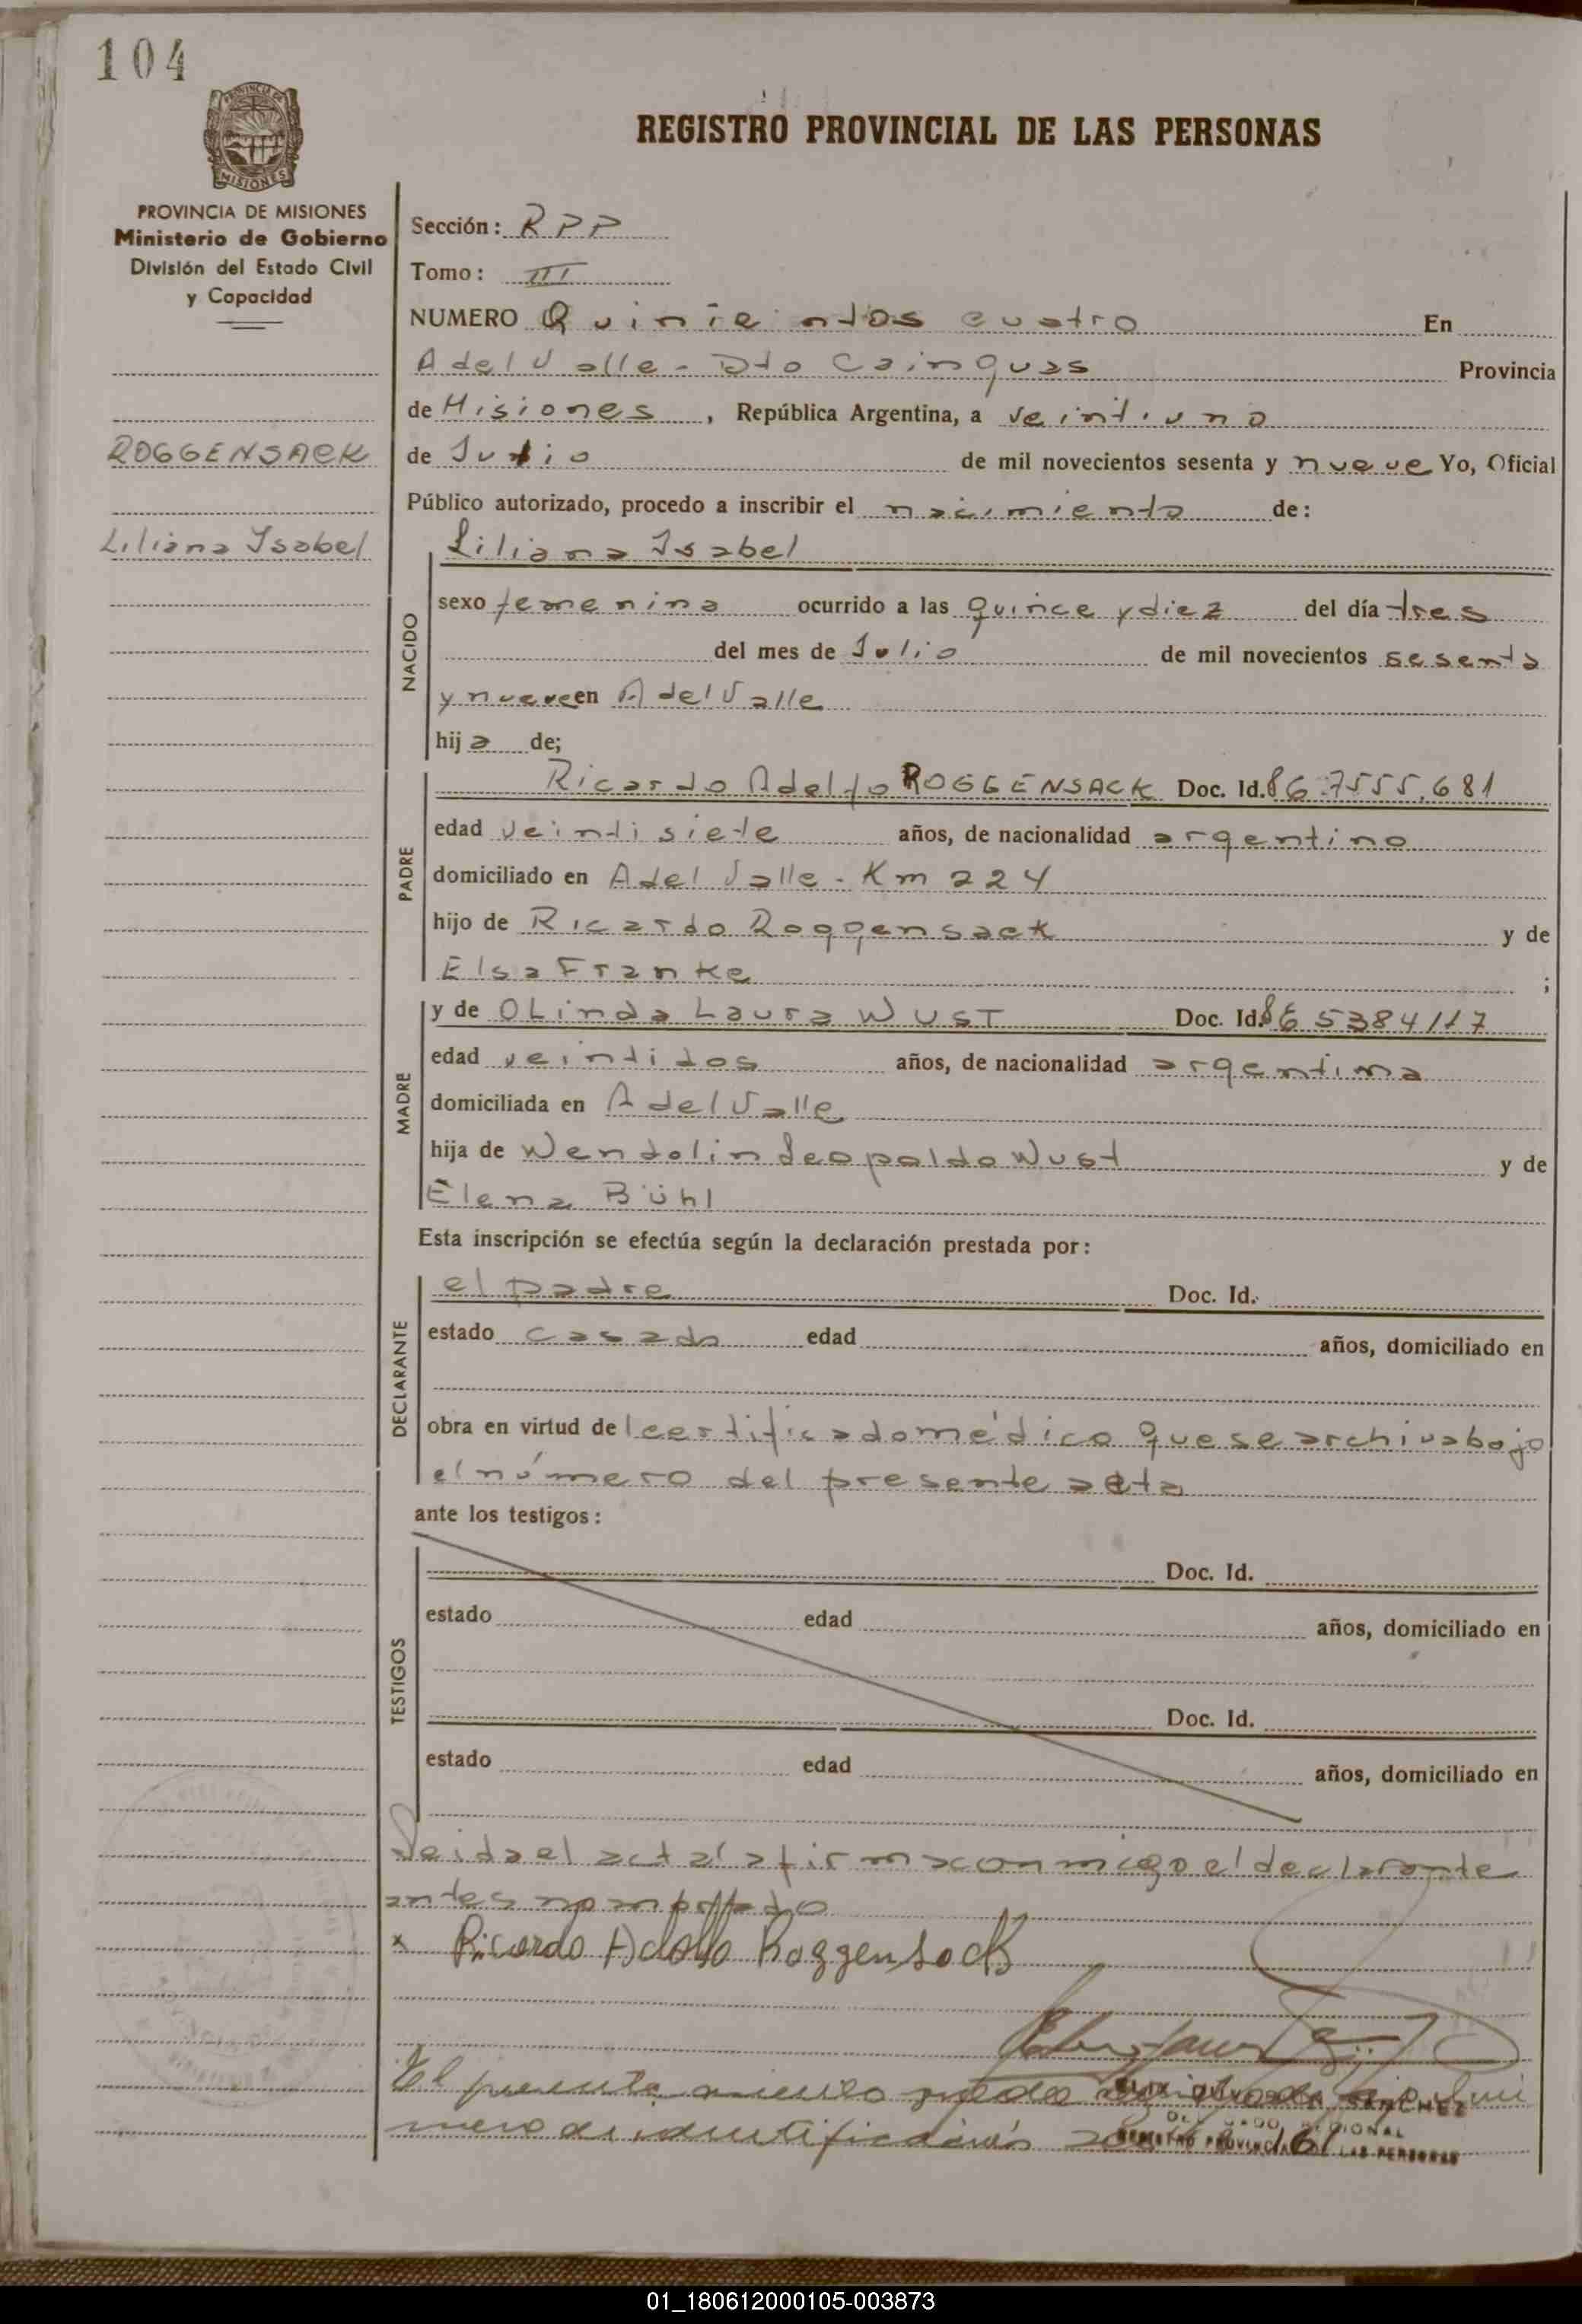 104
PROVINCIA DE
MISIONES
REGISTRO PROVINCIAL DE LAS PERSONAS
PROVINCIA DE MISIONES
Ministerio de Gobierno
División del Estado Civil
y Capacidad
ROGGENSACK
Liliana Isabel
Sección: RPP
Tomo: III
NUMERO Quinientos cuatro En
A del Valle - Dto Cainguas Provincia
de Misiones, República Argentina, a veintiuno
de Julio de mil novecientos sesenta y nueve Yo, Oficial
Público autorizado, procedo a inscribir el nacimiento de:
Liliana Isabel
NACIDO
sexo femenina ocurrido a las quince y diez del día tres
del mes de Julio de mil novecientos sesenta
y nueve en A del Valle
hija de;
PADRE
Ricardo Adolfo ROGGENSACK Doc. Id. 7.555.681
edad veintisiete años, de nacionalidad argentino
domiciliado en A del Valle - Km 224
hijo de Ricardo Roggensack y de
Elsa Franke ;
MADRE
y de OLinda Laura WUST Doc. Id.
edad veintidos años, de nacionalidad argentina
domiciliada en A del Valle
hija de Wendolin Leopoldo Wust y de
Elena Bühl
Esta inscripción se efectúa según la declaración prestada por:
DECLARANTE
el padre Doc. Id.
estado casado edad años, domiciliado en
obra en virtud del certificado médico que se archiva bajo
el número del presente acta
ante los testigos:
TESTIGOS
Doc. Id.
estado edad años, domiciliado en
Doc. Id.
estado edad años, domiciliado en
Leida el acta la firma conmigo el declarante
antes nombrado
x Ricardo Adolfo Roggensack
El presente
mero de identificación
SANCHEZ
REGIONAL
REGISTRO PROVINCIAL DE LAS PERSONAS
01_180612000105-003873